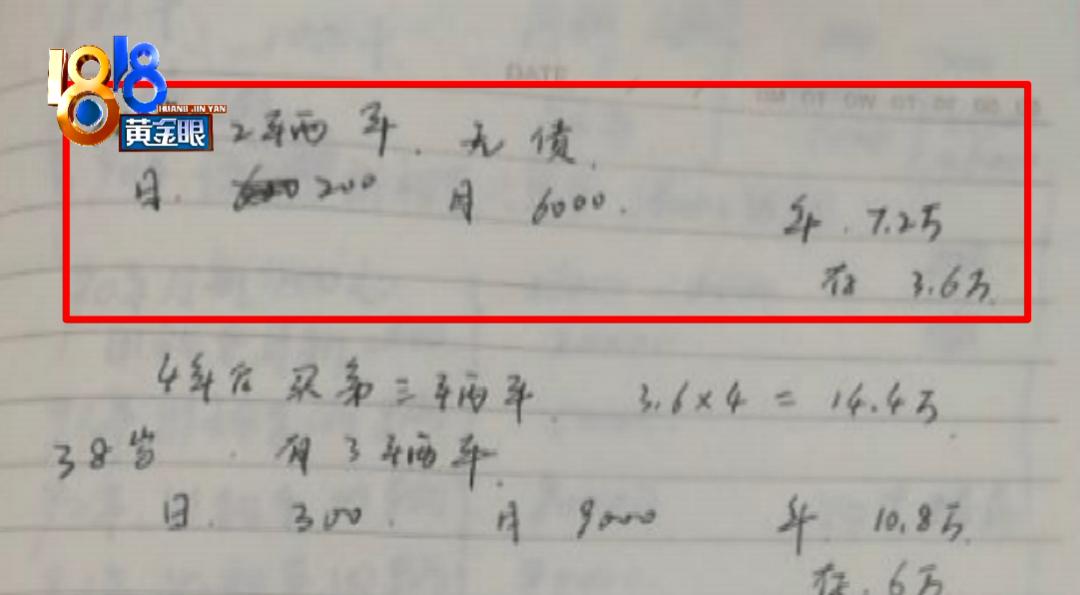 1818
HUANG JIN YAN
黄金眼
DATE
2辆车. 无债.
日. 200 月 6000. 年. 7.2万
存 3.6万.
4年后 买第三辆车 3.6×4 = 14.4万.
38岁. 有3辆车.
日. 300. 月 9000 年 10.8万.
存. 6万